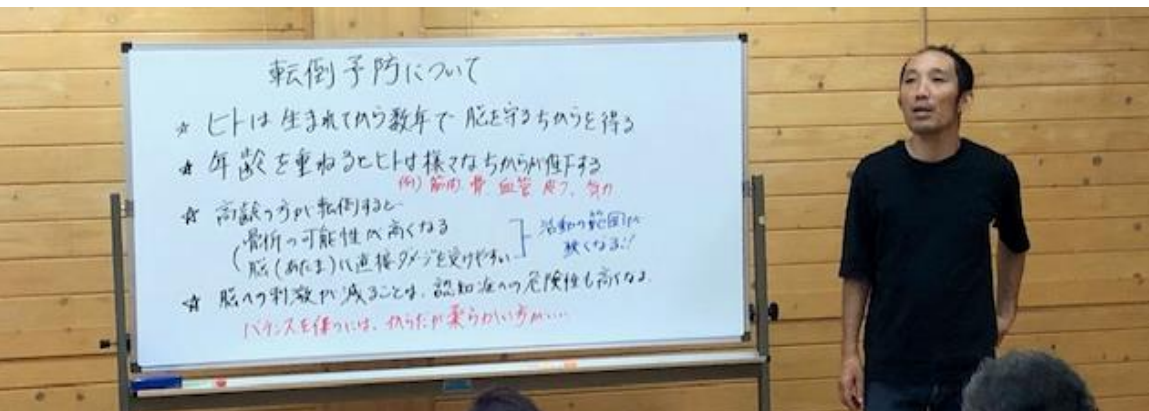 転倒予防について
☆ ヒトは生まれてから数年で脳を守るちからを得る
☆ 年齢を重ねるとヒトは様々なちからが低下する
(例) 筋肉 骨 血管 皮フ、気力
☆ 高齢の方が転倒すると
骨折の可能性が高くなる
脳(あたま)に直接ダメージを受けやすい
活動の範囲が
狭くなる!!
☆ 脳への刺激が減ることは、認知症への危険性も高くなる
バランスを保つには、からだが柔らかい方がいい…